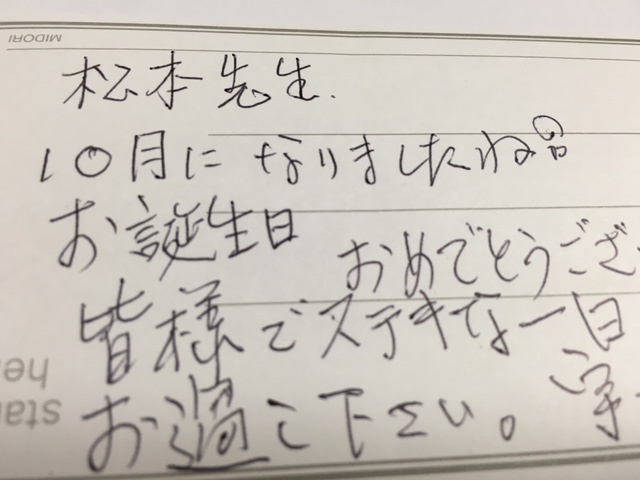 MIDORI
松本先生.
10月になりましたね
お誕生日
おめでとうござ
皆様でステキな一日
お過ご下さい。